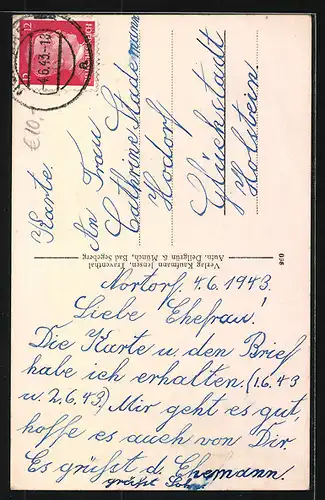 Nortorf, 4.6.1943.
Liebe Ehefrau!
Die Karte u. den Brief
habe ich erhalten. (1.6.43
u. 2.6.43) Mir geht es gut,
hoffe es auch von Dir.
Es grüßt d. Ehemann.
grüßt
Karte.
An Frau
Cathrine Stademann
Hodorf
Glückstadt
Holstein.
Verlag Kaufmann Jensen, Traventhal
Aufn. Dellgrün & Münch, Bad Segeberg
036
12
-4.6.43-18
a
€10,-